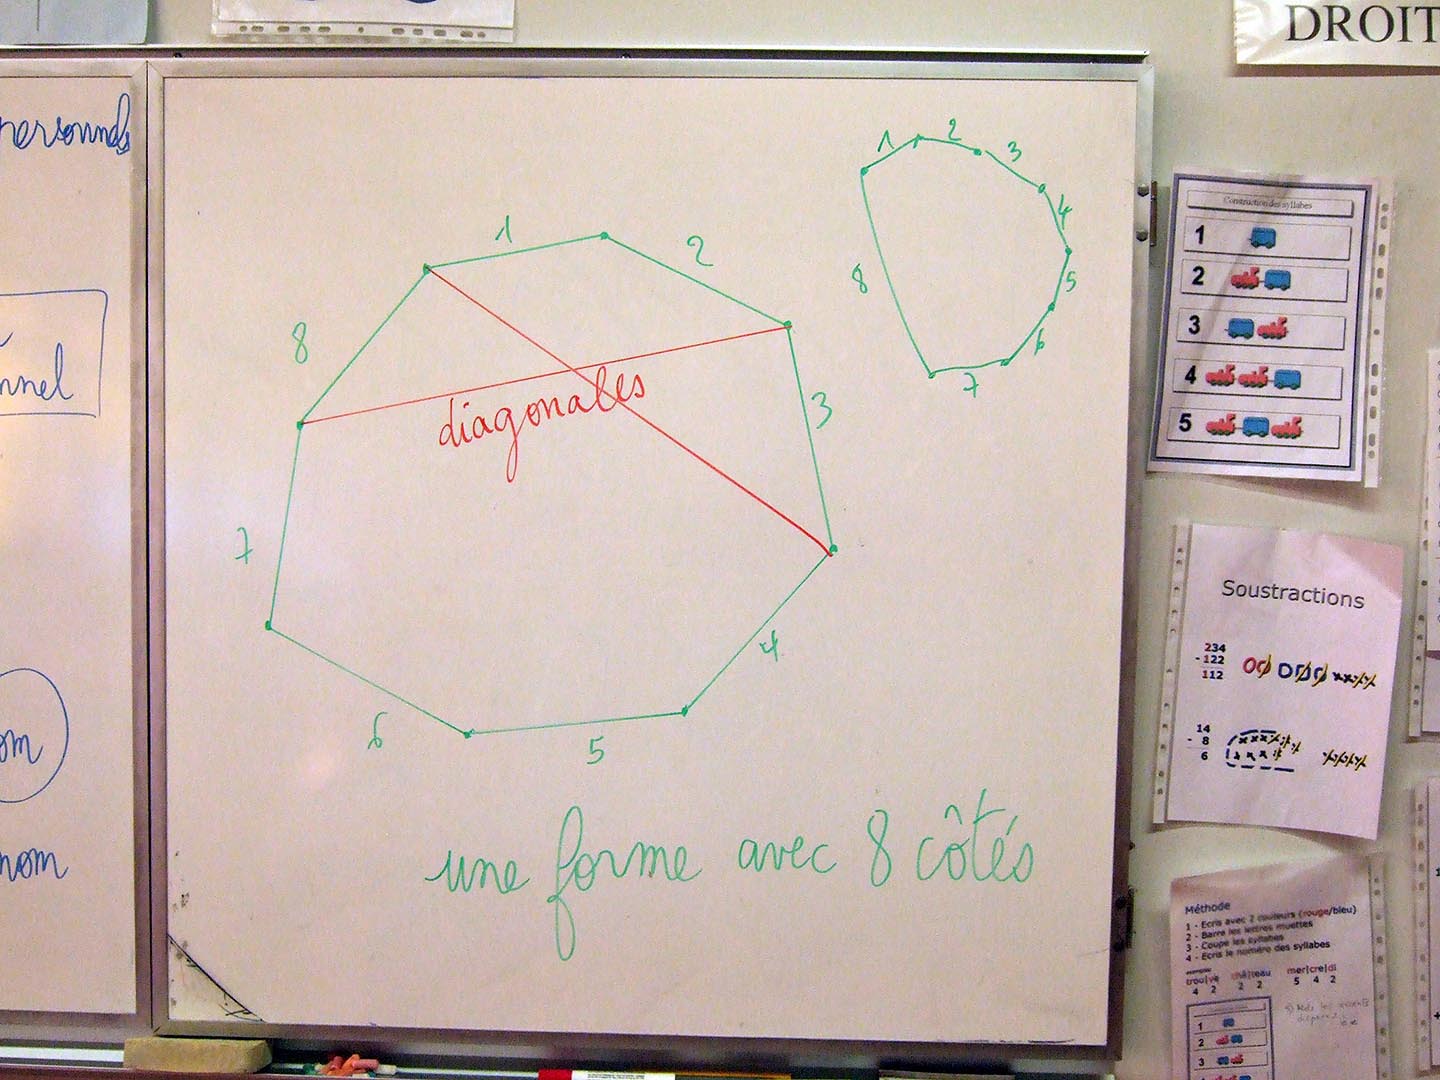 DROIT
personnels
nnel
om
nom
1
2
3
4
5
6
7
8
diagonales
1
2
3
4
5
6
7
8
une forme avec 8 côtés
Construction des syllabes
1
2
3
4
5
Soustractions
234
- 122
112
14
- 8
6
Méthode
1 - Ecris avec 2 couleurs (rouge/bleu)
2 - Barre les lettres muettes
3 - Coupe les syllabes
4 - Ecris le numéro des syllabes
trou|vé châ|teau mer|cre|di
4 2 2 2 5 4 2
1
2
3